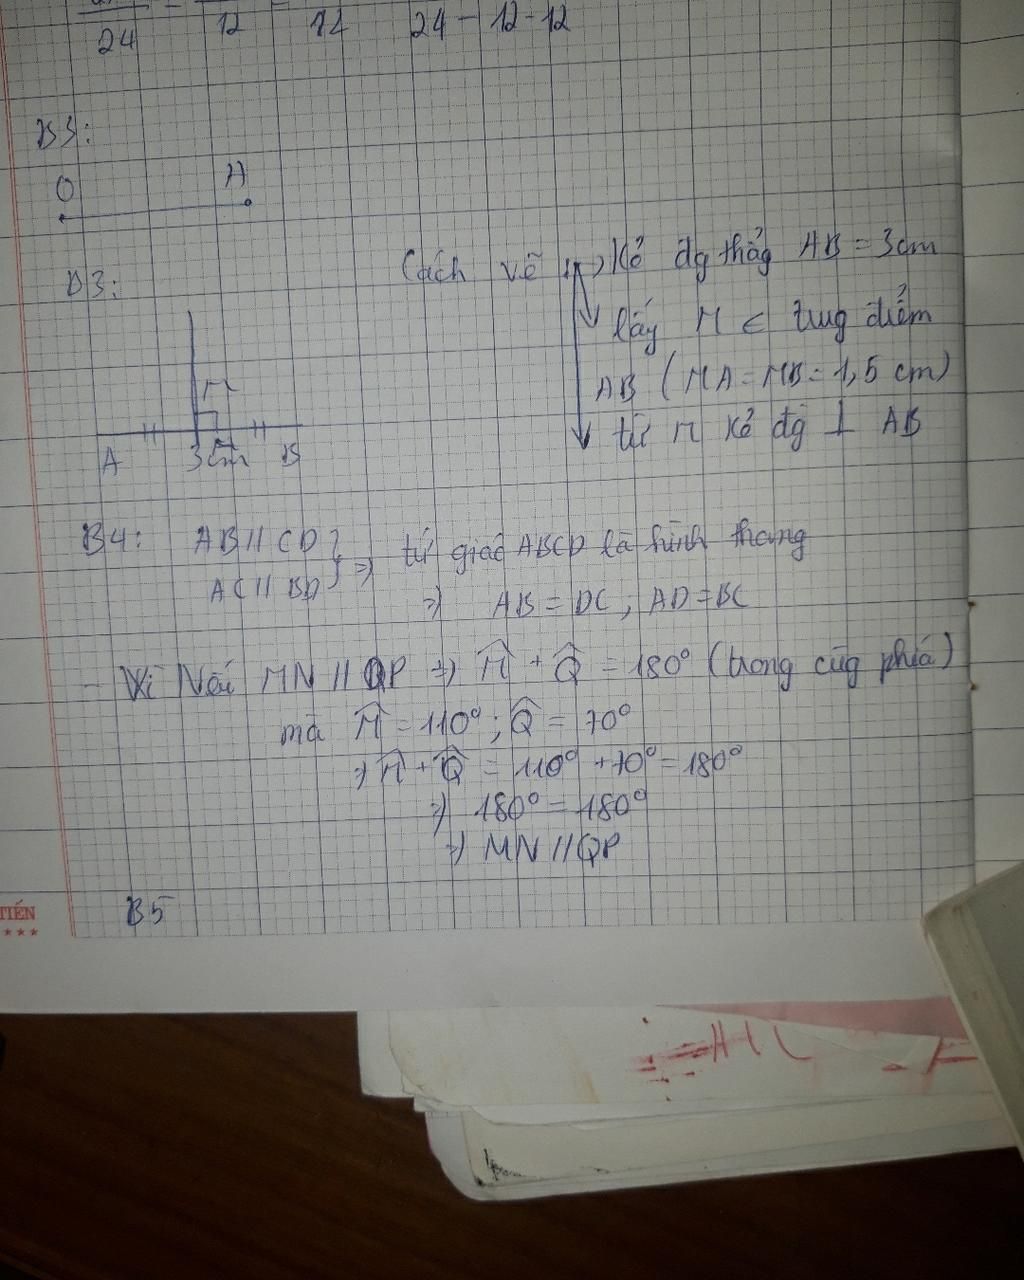 24 12 12 24 - 12 - 12
B3:
O A
B3:
Cách vẽ Kẻ đg thẳg AB = 3cm
lấy M ∈ trug điểm
AB (MA = MB = 1,5 cm)
từ M kẻ đg ⊥ AB
M
A 3cm B
B4: AB // CD } ⇒ tứ giác ABCD là hình thang
AC // BD
⇒ AB = DC ; AD = BC
- Vì Nếu MN // QP ⇒ M̂ + Q̂ = 180° (trong cùg phía)
mà M̂ = 110° ; Q̂ = 70°
⇒ M̂ + Q̂ = 110° + 70° = 180°
⇒ 180° = 180°
⇒ MN // QP
B5
TIẾN
★★★